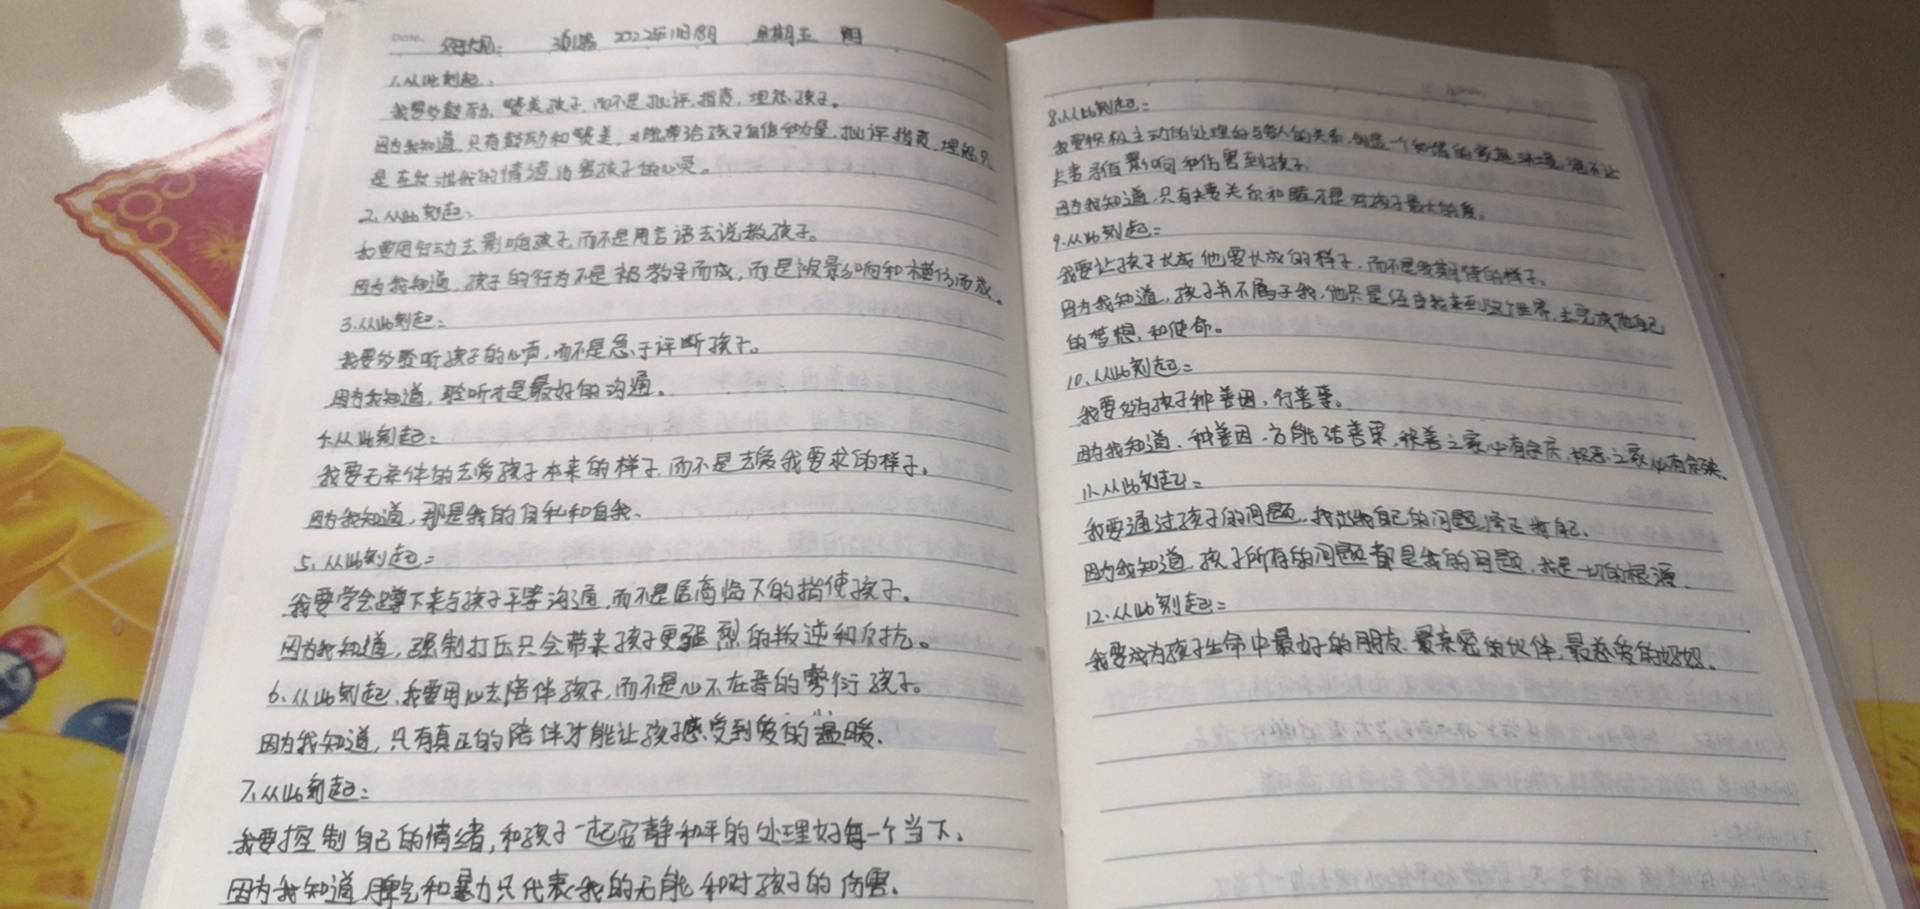 Date. 2022年11月18月 星期五 阴
1.从此刻起:
我要多鼓励,赞美孩子,而不是批评,指责,埋怨孩子。
因为我知道,只有鼓励和赞美,才能带给孩子自信和力量,批评指责,埋怨只
是在发泄我的情绪,伤害孩子的心灵。
2.从此刻起:
我要用行动去影响孩子,而不是用言语去说教孩子。
因为我知道,孩子的行为不是被教导而成,而是被影响和模仿而成。
3.从此刻起:
我要多聆听孩子的心声,而不是急于评断孩子。
因为我知道,聆听才是最好的沟通。
4.从此刻起:
我要无条件的去爱孩子本来的样子,而不是去爱我要求的样子。
因为我知道,那是我的自私和自我、
5.从此刻起:
我要学会蹲下来与孩子平等沟通,而不是居高临下的指使孩子。
因为我知道,强制打压只会带来孩子更强烈的叛逆和反抗。
6.从此刻起,我要用心去陪伴孩子,而不是心不在焉的敷衍孩子。
因为我知道,只有真正的陪伴才能让孩子感受到爱的温暖、
7.从此刻起:
我要控制自己的情绪,和孩子一起安静和平的处理好每一个当下。
因为我知道脾气和暴力只代表我的无能和对孩子的伤害。
8.从此刻起:
我要积极主动的处理好与家人的关系,创造一个和谐的家庭环境,绝不让
夫妻矛盾影响和伤害到孩子
因为我知道,只有夫妻关系和睦才是对孩子最大的爱。
9.从此刻起:
我要让孩子长成他要长成的样子,而不是我期待的样子。
因为我知道,孩子并不属于我,他只是经由我来到这个世界,去完成他自己
的梦想,和使命。
10.从此刻起:
我要多为孩子种善因,行善事。
因为我知道、种善因、方能结善果,积善之家必有余庆,积恶之家必有余殃、
11.从此刻起:
我要通过孩子的问题,找出我自己的问题,修正我自己、
因为我知道,孩子所有的问题都是我的问题,我是一切的根源、
12.从此刻起:
我要成为孩子生命中最好的朋友、最亲密的伙伴,最慈爱的妈妈、